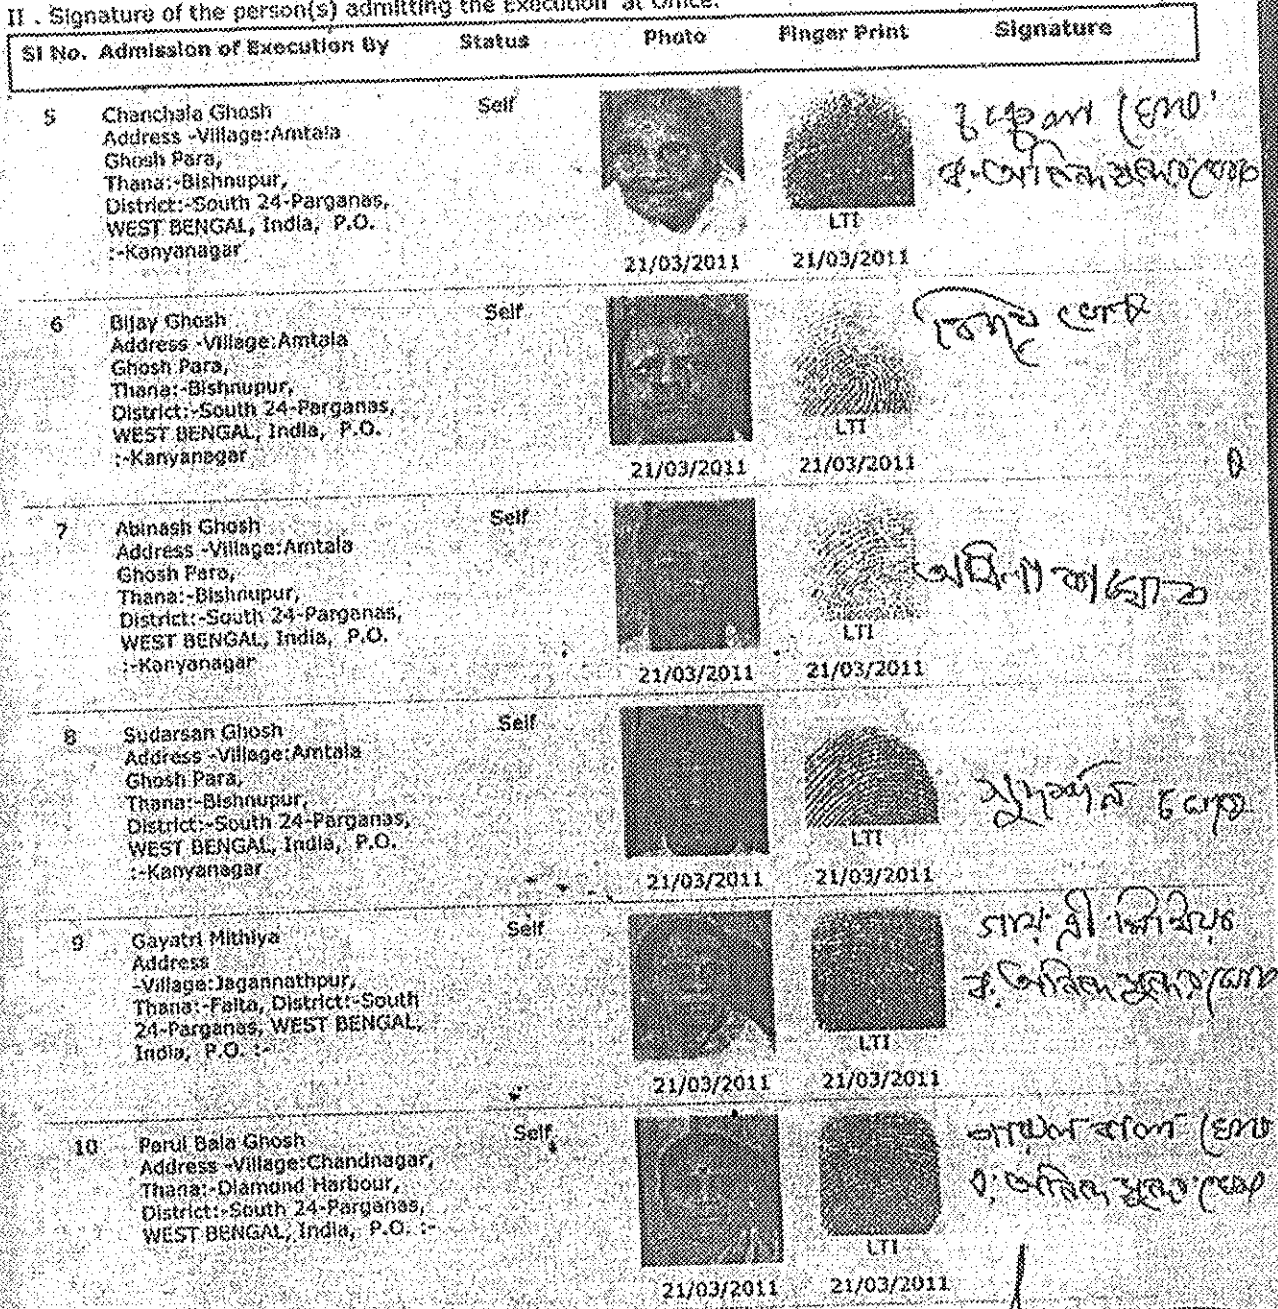 II . Signature of the person(s) admitting the Execution at Office.
Sl No. Admission of Execution By Status Photo Finger Print Signature
5 Chanchala Ghosh Self
Address -Village:Amtala
Ghosh Para,
Thana:-Bishnupur,
District:-South 24-Parganas,
WEST BENGAL, India, P.O.
:-Kanyanagar
LTI
21/03/2011 21/03/2011
6 Bijay Ghosh Self
Address -Village:Amtala
Ghosh Para,
Thana:-Bishnupur,
District:-South 24-Parganas,
WEST BENGAL, India, P.O.
:-Kanyanagar
LTI
21/03/2011 21/03/2011
7 Abinash Ghosh Self
Address -Village:Amtala
Ghosh Para,
Thana:-Bishnupur,
District:-South 24-Parganas,
WEST BENGAL, India, P.O.
:-Kanyanagar
LTI
21/03/2011 21/03/2011
8 Sudarsan Ghosh Self
Address -Village:Amtala
Ghosh Para,
Thana:-Bishnupur,
District:-South 24-Parganas,
WEST BENGAL, India, P.O.
:-Kanyanagar
LTI
সুদর্শন ঘোষ
21/03/2011 21/03/2011
9 Gayatri Mithiya Self
Address
-Village:Jagannathpur,
Thana:-Falta, District:-South
24-Parganas, WEST BENGAL,
India, P.O. :-
LTI
21/03/2011 21/03/2011
10 Parul Bala Ghosh Self
Address -Village:Chandnagar,
Thana:-Diamond Harbour,
District:-South 24-Parganas,
WEST BENGAL, India, P.O. :-
LTI
21/03/2011 21/03/2011